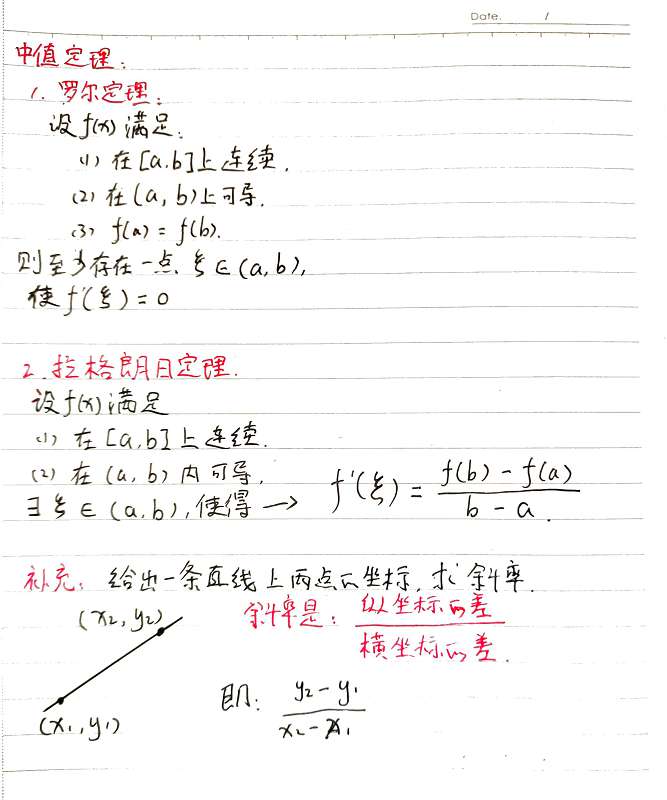 Date. /
中值定理:
1. 罗尔定理:
设f(x)满足:
(1) 在[a.b]上连续.
(2) 在(a, b)上可导.
(3) f(a) = f(b).
则至少存在一点 ξ∈(a, b),
使f'(ξ) = 0
2. 拉格朗日定理.
设f(x)满足
(1) 在[a,b]上连续.
(2) 在(a, b)内可导.
∃ ξ ∈ (a, b), 使得 → f'(ξ) = (f(b) - f(a)) / (b - a).
补充: 给出一条直线上两点的坐标, 求斜率.
(x2, y2) 斜率是: 纵坐标的差 / 横坐标的差.
(x1, y1) 即: (y2 - y1) / (x2 - x1)